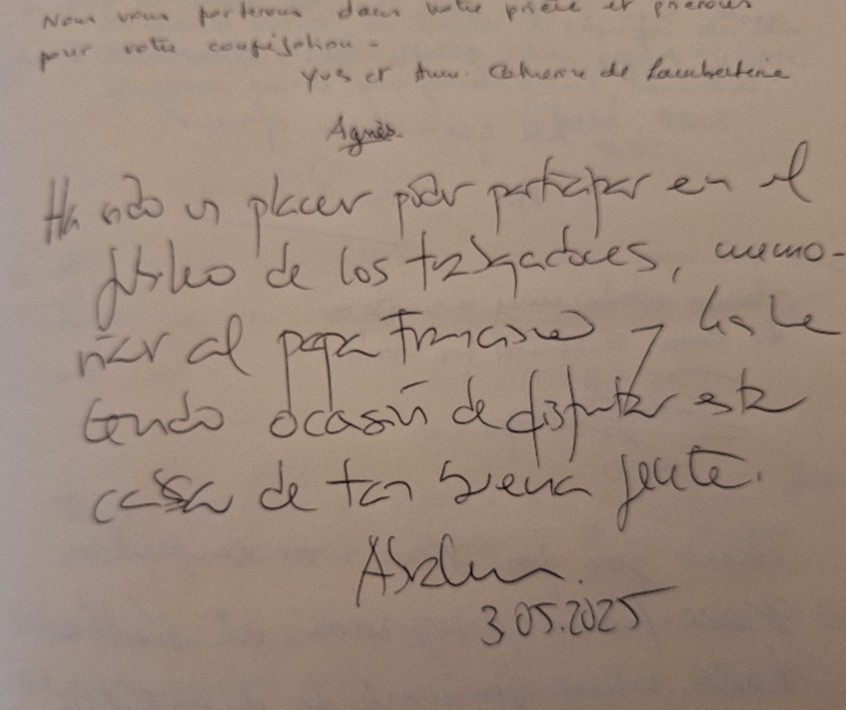 Nous vous porterons dans notre prière et prierons
pour votre congrégation.
Yves et Anne Catherine de Lamberterie
Agnès.
Ha sido un placer poder participar en el
jubileo de los trabajadores, memo-
rar al papa Francisco y
tenido ocasión de disfrutar esta
casa de tan buena gente.
3.05.2025